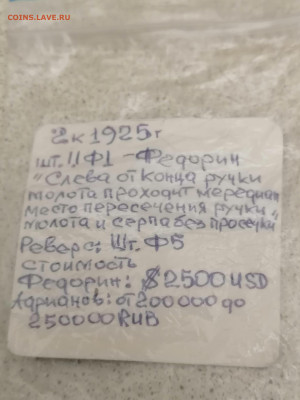 COINS.LAVE.RU
2к 1925г
шт. 1.1Ф1 - Федорин
"Слева от конца ручки
молота проходит меридиан
место пересечения ручки
молота и серпа без просечки"
Реверс: Шт. Ф5
Стоимость
Федорин: $2500USD
Адрианов: от 200000 до
250000RUB